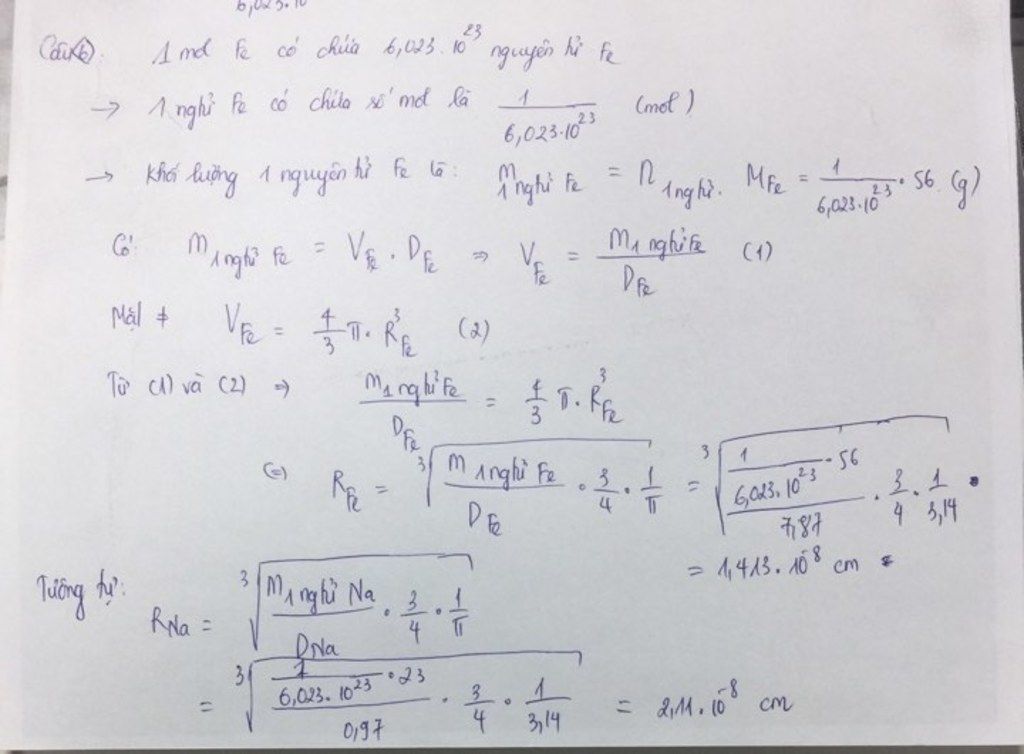 6,023.10
Câu 6). 1 mol Fe có chứa 6,023.10²³ nguyên tử Fe
→ 1 nghtử Fe có chứa số mol là 1/(6,023.10²³) (mol)
→ Khối lượng 1 nguyên tử Fe là: m₁ nghtử Fe = n₁ nghtử. M_Fe = 1/(6,023.10²³) . 56 (g)
Có: m₁ nghtử Fe = V_Fe . D_Fe ⇒ V_Fe = m₁ nghtử Fe / D_Fe (1)
Mặt ≠ V_Fe = 4/3 π. R³_Fe (2)
Từ (1) và (2) ⇒ m₁ nghtử Fe / D_Fe = 4/3 π. R³_Fe
(=) R_Fe = ∛(m₁ nghtử Fe / D_Fe . 3/4 . 1/π) = ∛((1/(6,023.10²³) . 56) / 7,87 . 3/4 . 1/3,14)
= 1,413.10⁻⁸ cm
Tương tự: R_Na = ∛(m₁ nghtử Na / D_Na . 3/4 . 1/π)
= ∛((1/(6,023.10²³) . 23) / 0,97 . 3/4 . 1/3,14) = 2,11.10⁻⁸ cm